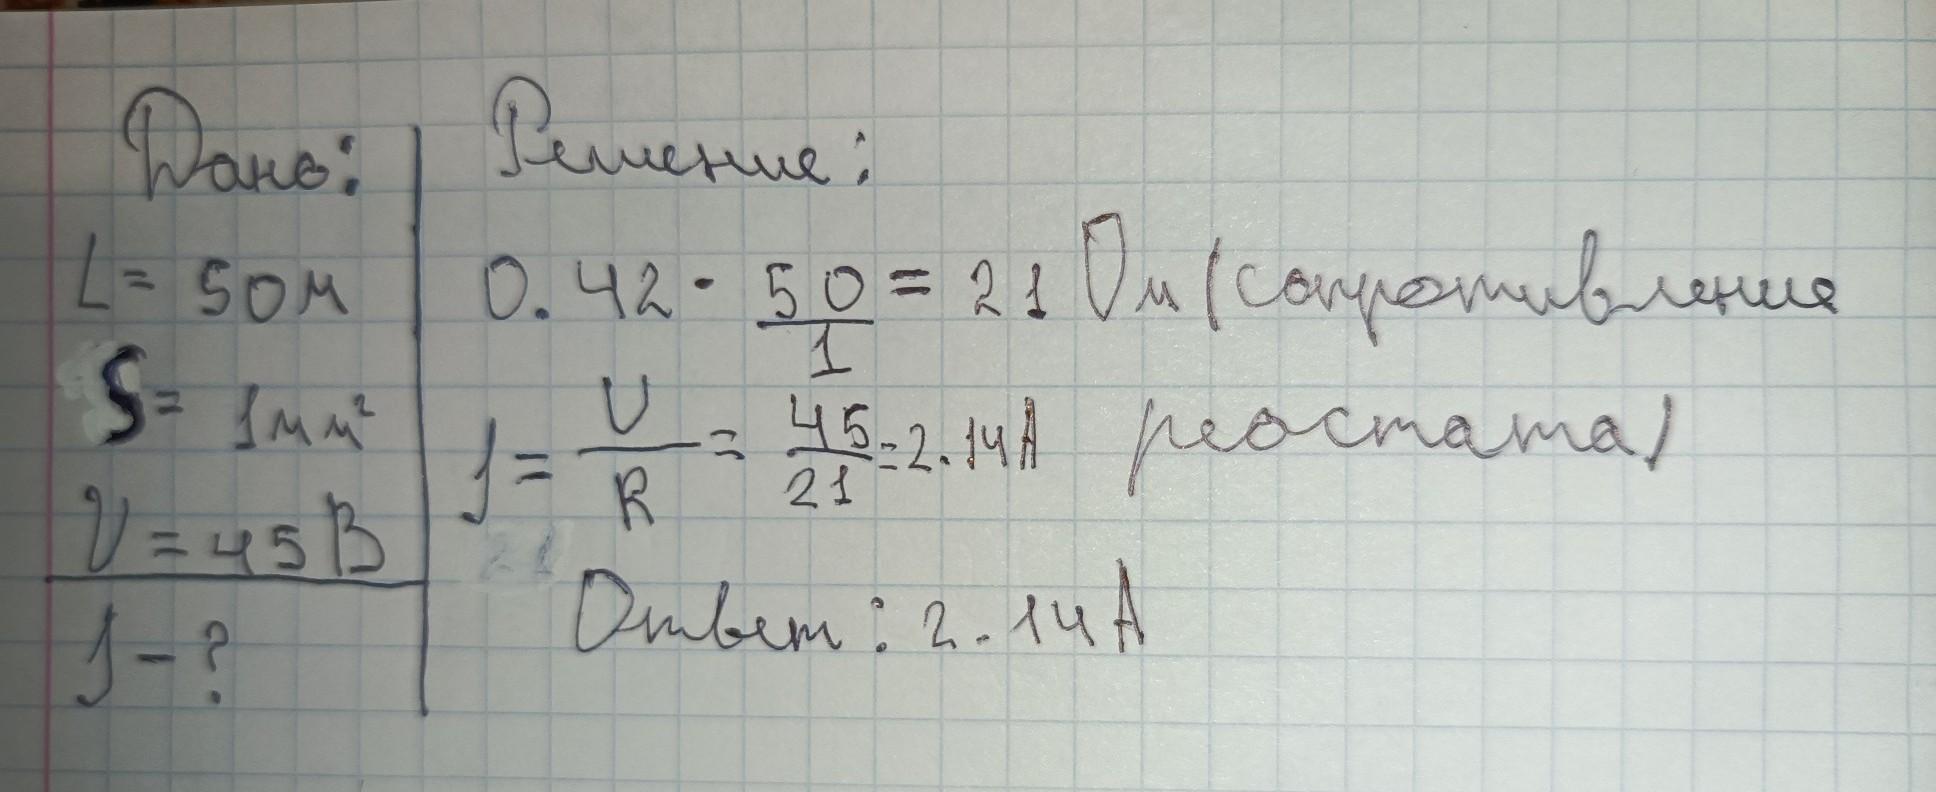 Дано:
L = 50м
S = 1мм²
U = 45В
J - ?
Решение:
0.42 · 50/1 = 21 Ом (сопротивление
реостата)
J = U/R = 45/21 = 2.14А
Ответ: 2.14А